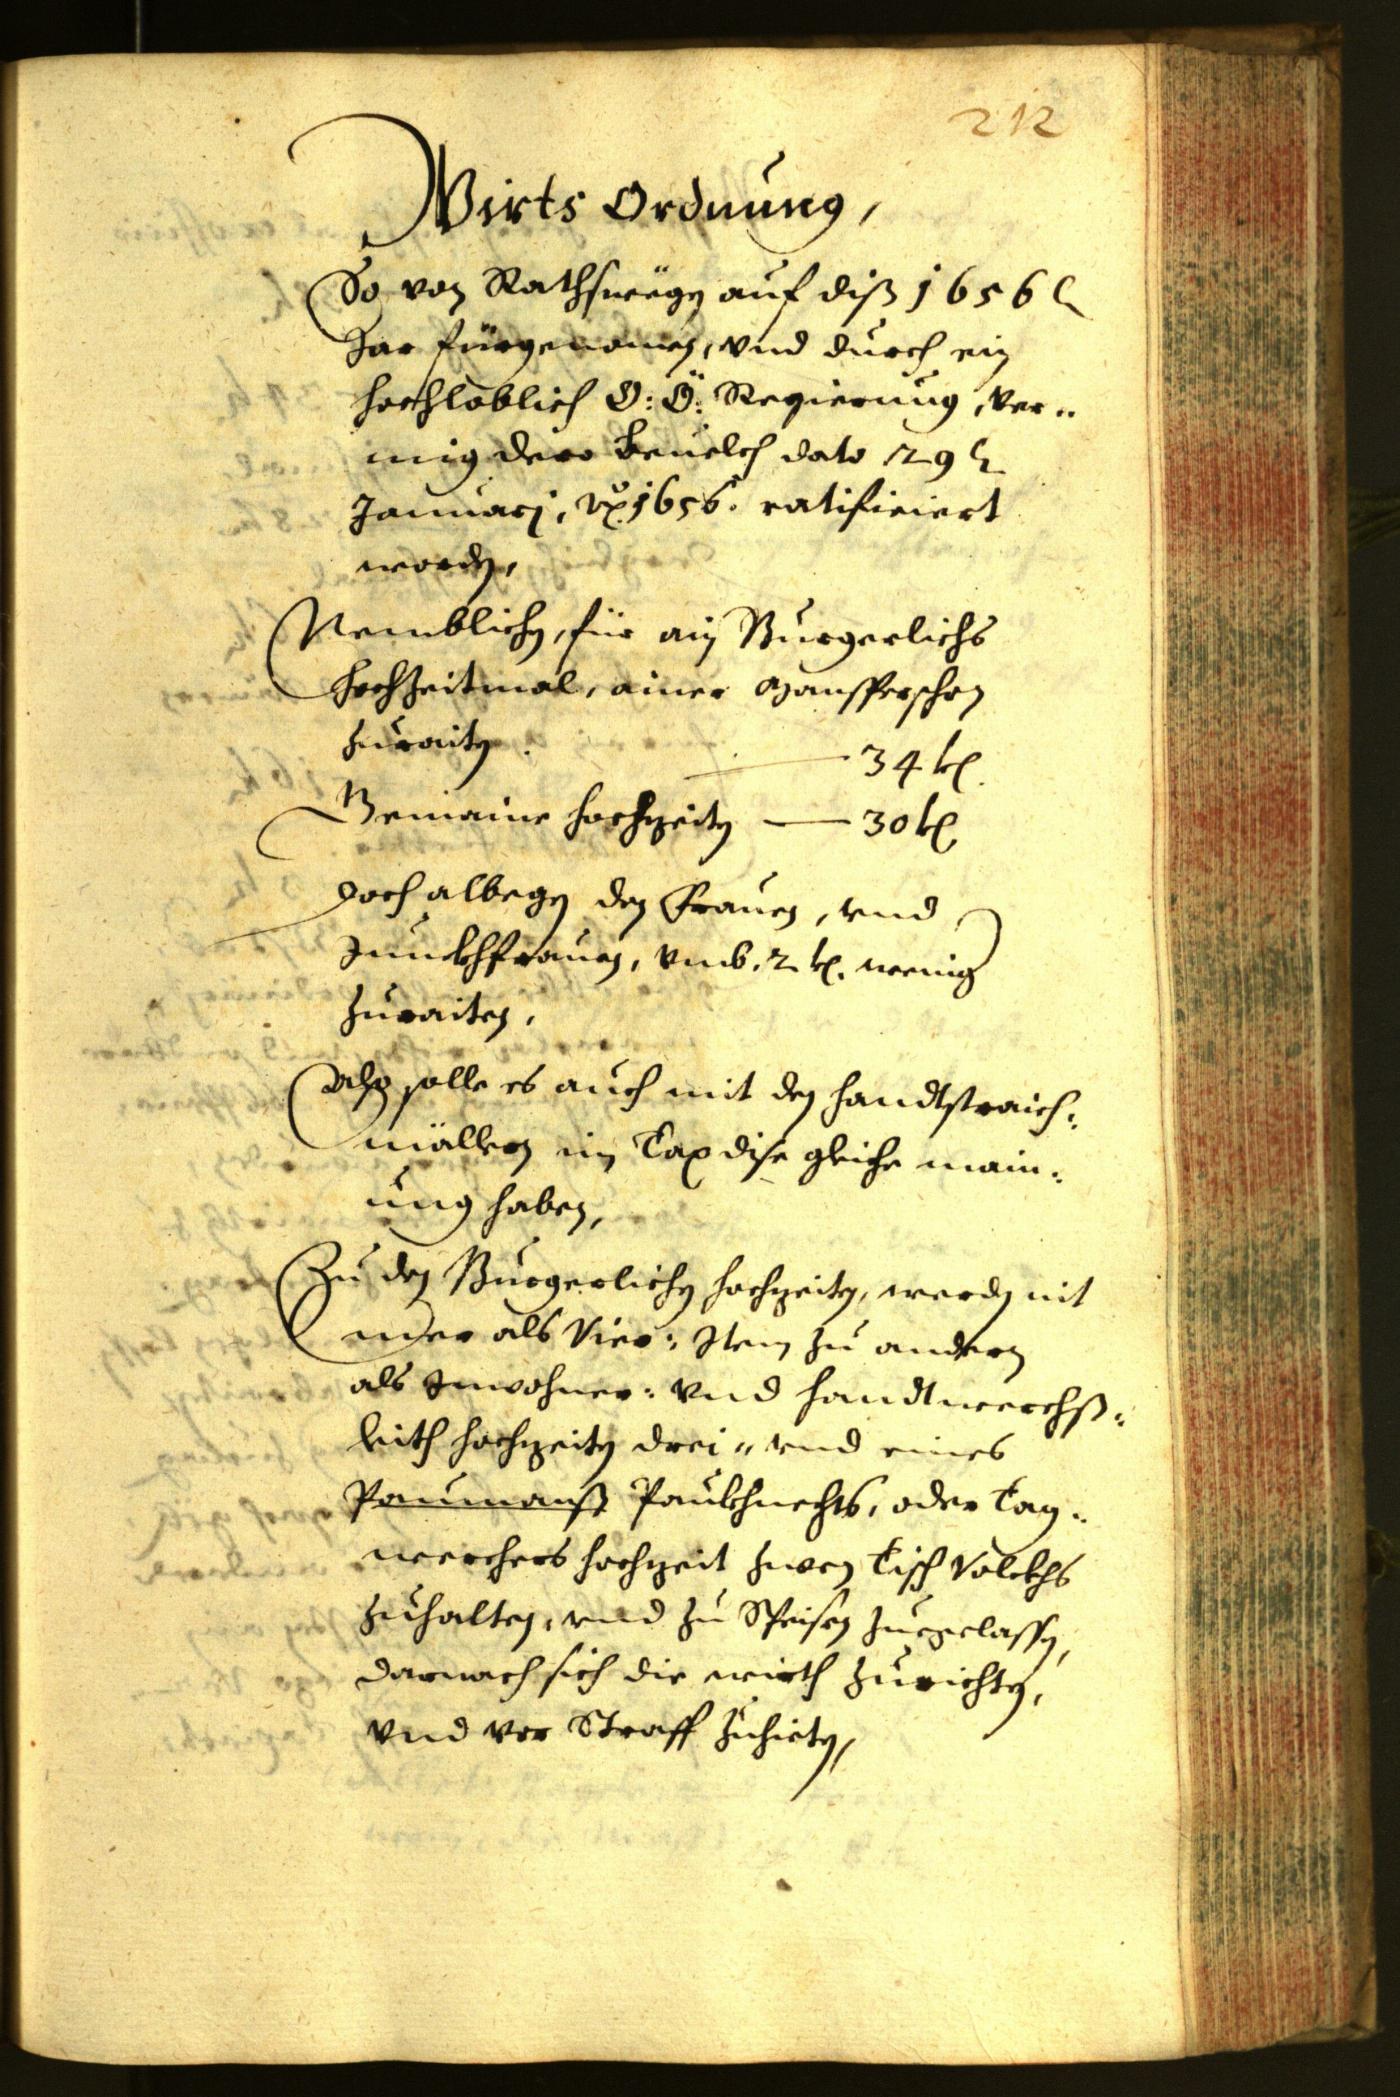 212
Wirts Ordnung,
So von Rathswegen auf diß 1656 t
Jar fürgenomen, vnd durch ein
hochloblich O: Ö: Regierung, ver„
mig dero Beuelch dato 29 t
Januarj, aō 1656. ratificiert
worden,
Nemblichen, für ain Burgerlichs
Hochzeitmal, ainer Manßpersohn
zuraiten
34 kr
Gemaine Hochzeiten — 30 kr
Doch albegen den Frauen, vnd
Junckhfrauen, vmb. 2 kr. wenig
zuraiten,
Also solle es auch mit den Handtstraich:
mällern im Tax dise gleiche main:
ung haben,
Zu den Burgerlichen Hochzeiten, werden nit
mer als Vier: Item zu andern
als Inwohner: vnd Handtwerchß:
leith Hochzeiten drei„ vnd eines
Paumanß Paukhnechts, oder Tag„
werchers Hochzeit zwen Tisch Volckhs
zuhalten, vnd zu Speisen zuegelassen,
darnach sich die Wirth zurichten,
vnd vor Straff zuhieten,